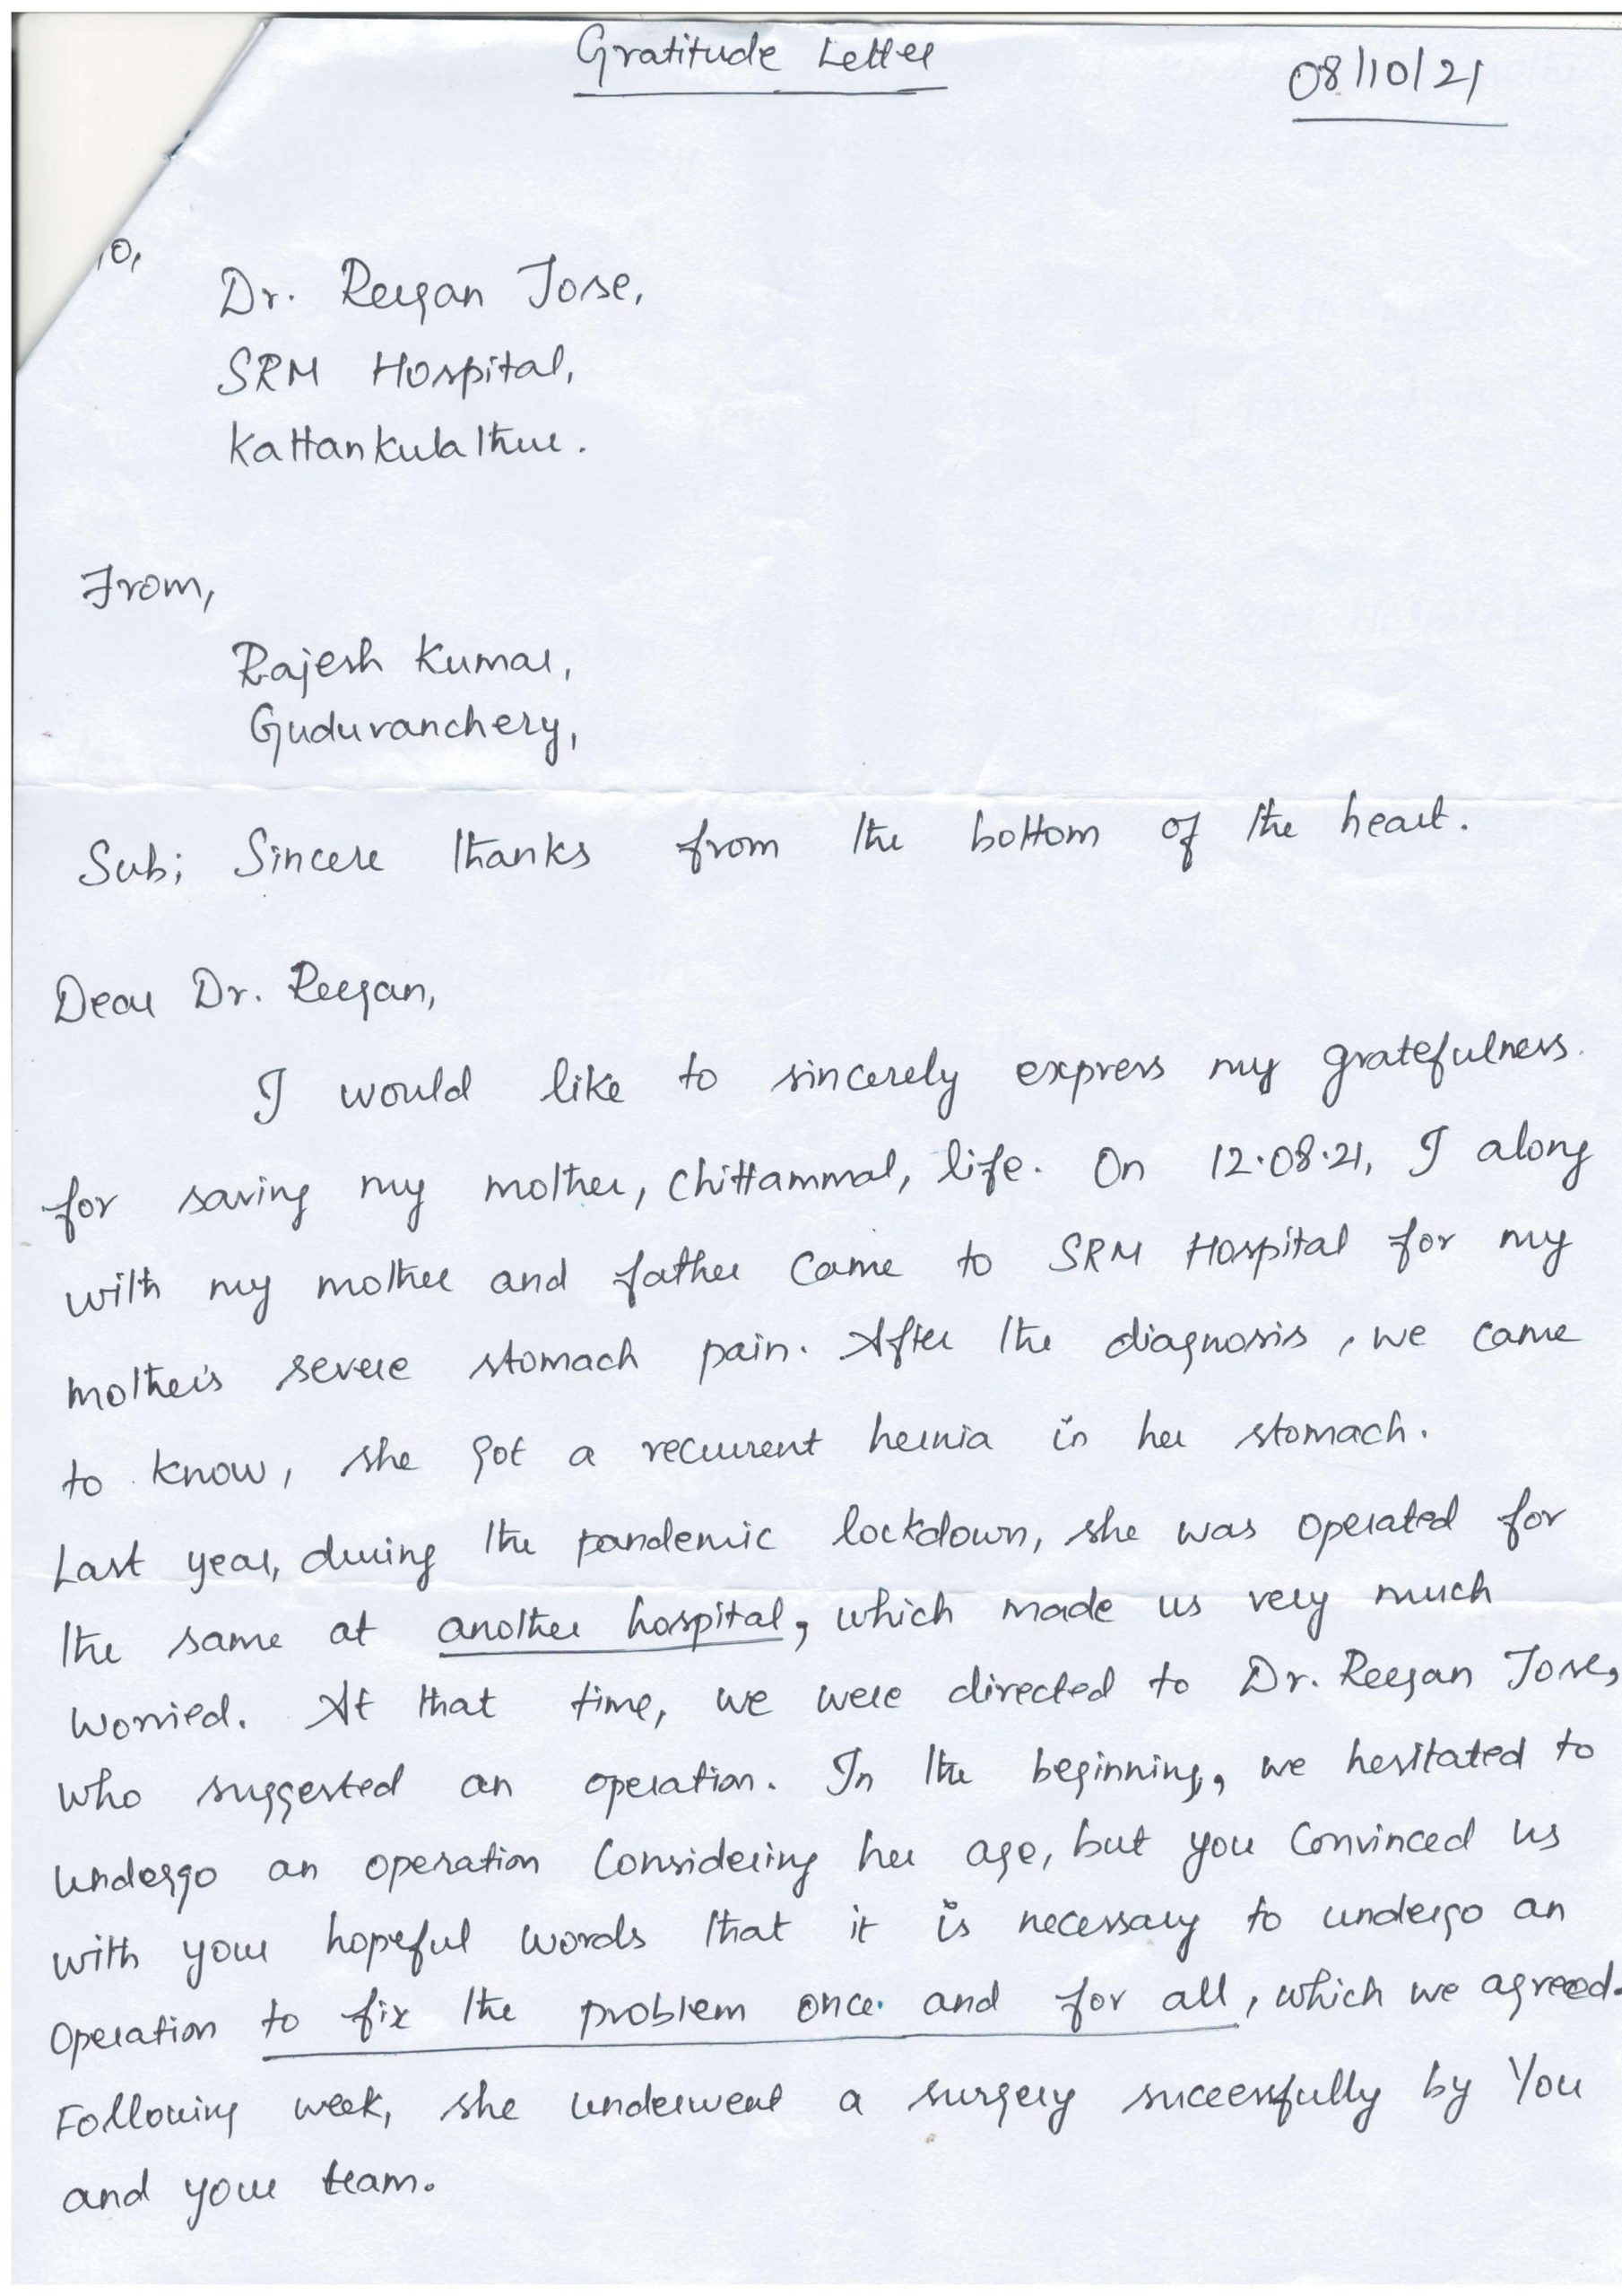 Gratitude Letter
08/10/21
To,
Dr. Reegan Jose,
SRM Hospital,
Kattankulathur.
From,
Rajesh Kumar,
Guduvanchery,
Sub; Sincere thanks from the bottom of the heart.
Dear Dr. Reegan,
I would like to sincerely express my gratefulness.
for saving my mother, Chittammal, life. On 12.08.21, I along
with my mother and father came to SRM Hospital for my
mother's severe stomach pain. After the diagnosis, we came
to know, she got a recurrent hernia in her stomach.
Last year, during the pandemic lockdown, she was operated for
the same at another hospital, which made us very much
worried. At that time, we were directed to Dr. Reegan Jose,
who suggested an operation. In the beginning, we hesitated to
undergo an operation considering her age, but you convinced us
with your hopeful words that it is necessary to undergo an
operation to fix the problem once and for all, which we agreed.
Following week, she underwent a surgery sucessfully by You
and your team.